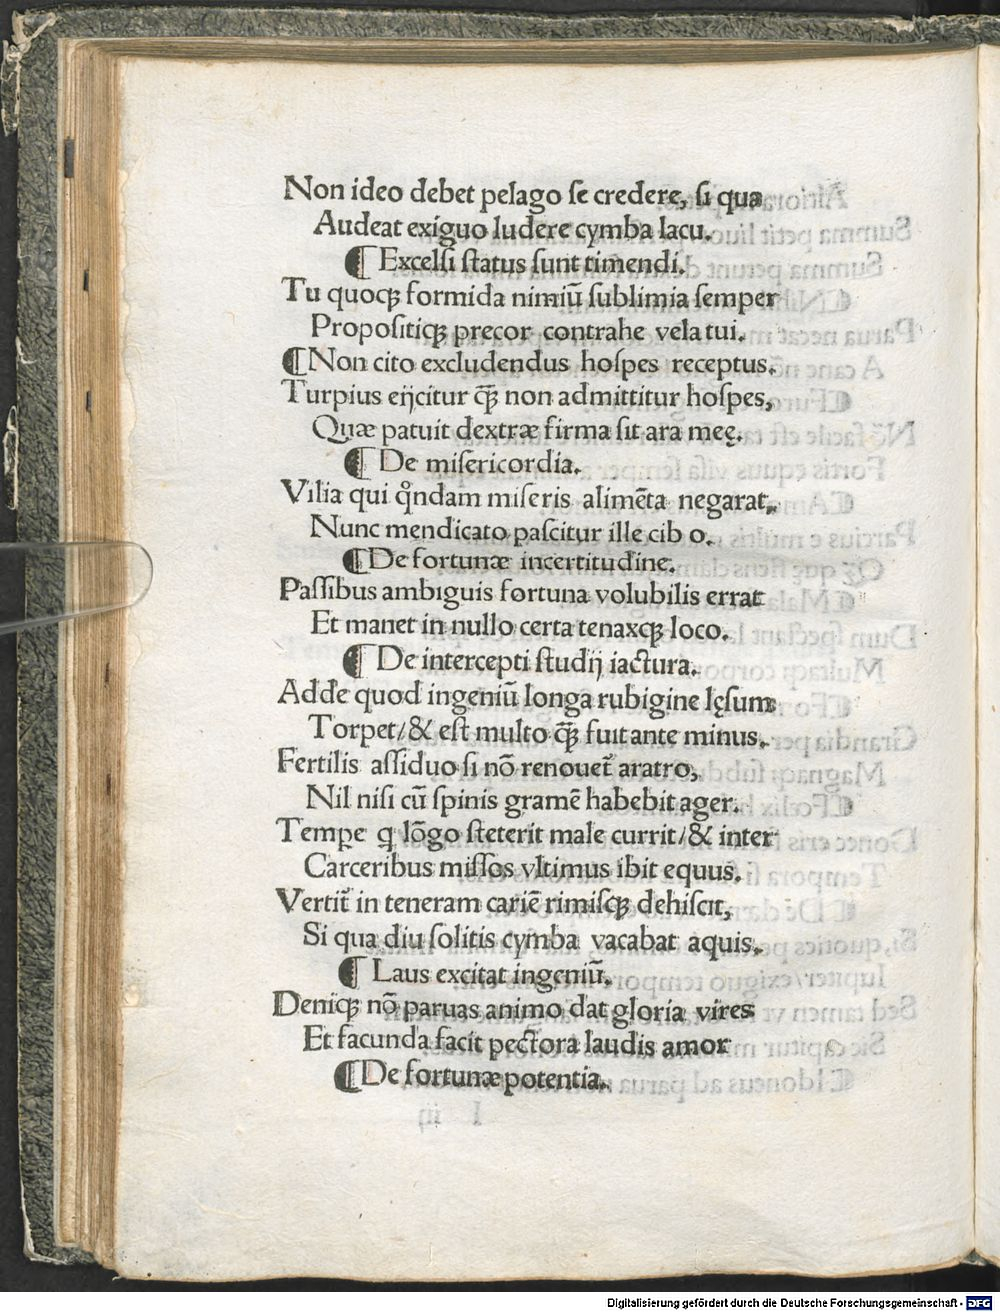 Non ideo debet pelago se credere, si qua
Audeat exiguo ludere cymba lacu.
¶ Excelſi ſtatus ſunt timendi.
Tu quoqꝫ formida nimiū ſublimia ſemper
Propoſitiqꝫ precor contrahe vela tui.
¶ Non cito excludendus hoſpes receptus.
Turpius eijcitur q̄ꝫ non admittitur hoſpes,
Quæ patuit dextræ firma ſit ara meę.
¶ De miſericordia.
Vilia qui qͦndam miſeris alimēta negarat,
Nunc mendicato paſcitur ille cib o.
¶ De fortunæ incertitudine.
Paſſibus ambiguis fortuna volubilis errat
Et manet in nullo certa tenaxqꝫ loco.
¶ De intercepti ſtudij iactura.
Adde quod ingeniū longa rubigine lęſum
Torpet/& eſt multo q̄ꝫ fuit ante minus.
Fertilis aſſiduo ſi nō renouet᷑ aratro,
Nil niſi cū ſpinis gramē habebit ager.
Tempe q lōgo ſteterit male currit/& inter
Carceribus miſſos vltimus ibit equus.
Vertit᷑ in teneram cariē rimiſqꝫ dehiſcit,
Si qua diu ſolitis cymba vacabat aquis.
¶ Laus excitat ingeniū.
Deniqꝫ nō paruas animo dat gloria vires
Et facunda facit pectora laudis amor
¶ De fortunæ potentia.
Digitalisierung gefördert durch die Deutsche Forschungsgemeinschaft - DFG